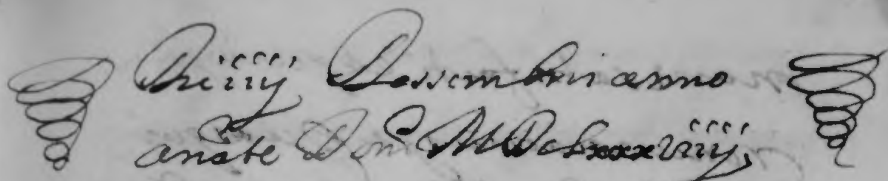 Die iiij Dessembris anno
anãte Don MDcLxxxviiij,